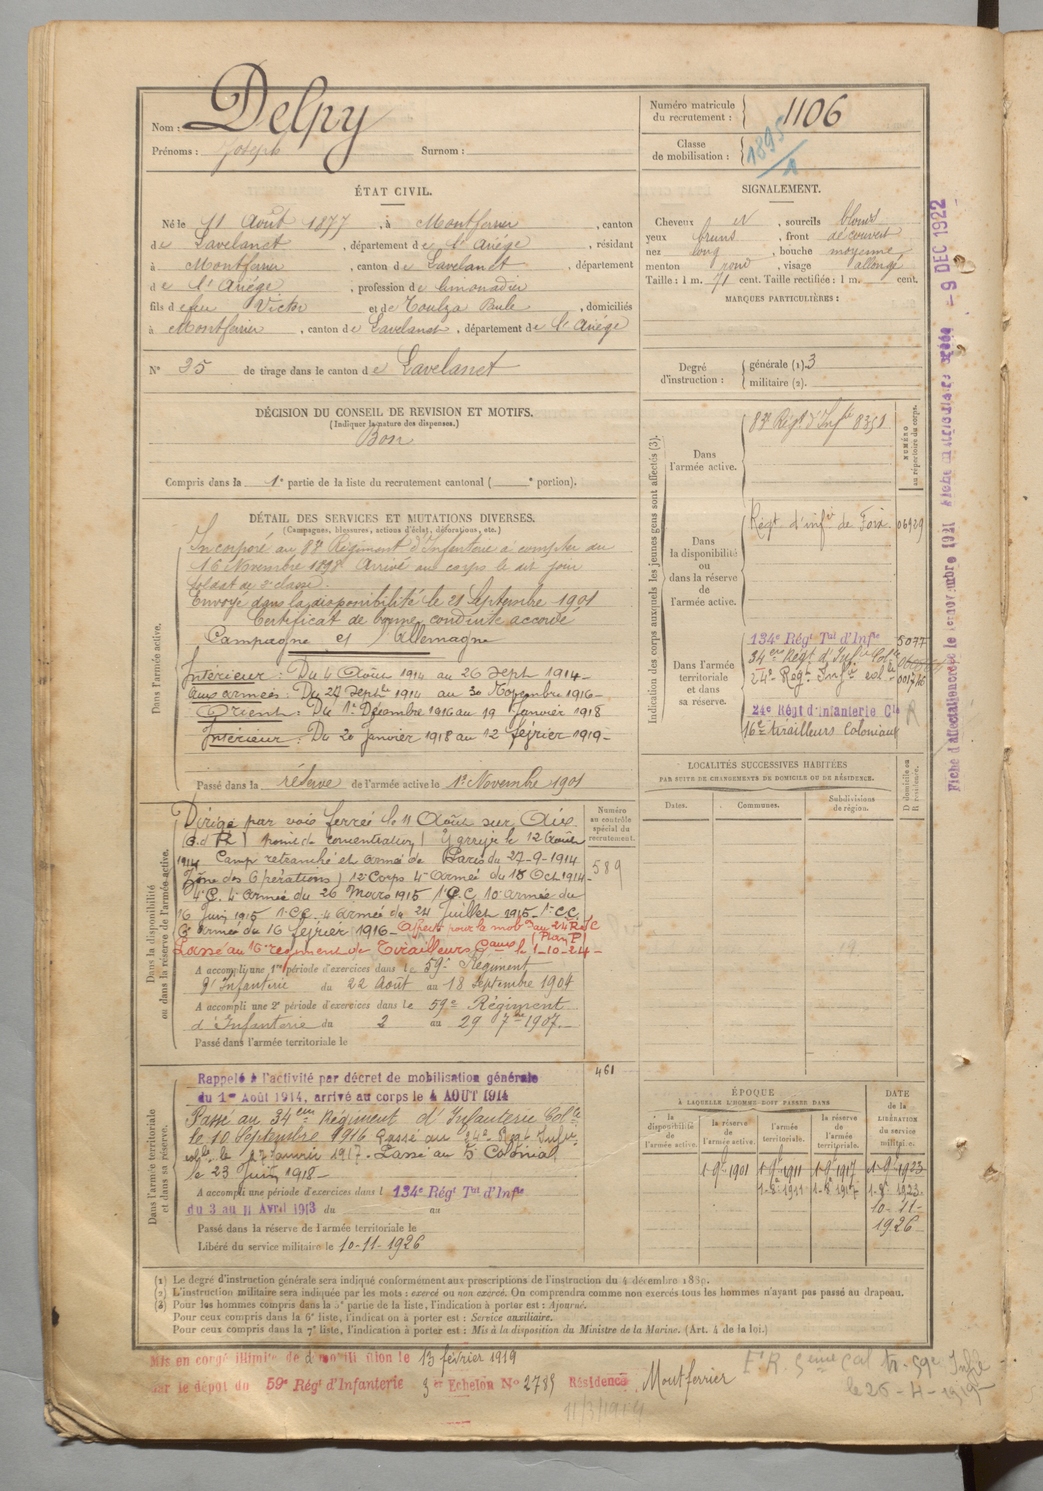 Nom : Delpy
Prénoms : Joseph Surnom :
Numéro matricule du recrutement : 1106
Classe de mobilisation : 1895/1
ÉTAT CIVIL.
Né le 11 Août 1877, à Montferrier, canton
de Lavelanet, département de l'Ariège, résidant
à Montferrier, canton de Lavelanet, département
de l'Ariège, profession de limonadier
fils de feu Victor et de Toulza Paule, domiciliés
à Montferrier, canton de Lavelanet, département de l'Ariège
N° 25 de tirage dans le canton de Lavelanet
SIGNALEMENT.
Cheveux et, sourcils blonds
yeux bruns, front découvert
nez long, bouche moyenne
menton rond, visage allongé
Taille : 1 m. 71 cent. Taille rectifiée : 1 m. cent.
MARQUES PARTICULIÈRES :
Degré d'instruction : générale (1). 3
militaire (2).
DÉCISION DU CONSEIL DE REVISION ET MOTIFS.
(Indiquer la nature des dispenses.)
Bon
Compris dans la 1e partie de la liste du recrutement cantonal ( e portion).
DÉTAIL DES SERVICES ET MUTATIONS DIVERSES.
(Campagnes, blessures, actions d'éclat, décorations, etc.)
Dans l'armée active.
Incorporé au 83e Régiment d'Infanterie à compter du
16 Novembre 1898 Arrivé au corps le dit jour
soldat de 2e classe.
Envoyé dans la disponibilité le 21 Septembre 1901
Certificat de bonne conduite accordé
Campagne et Allemagne
Intérieur : Du 4 Août 1914 au 26 Sept 1914 -
aux armées : Du 27 Septbre 1914 au 30 Novembre 1916 -
Orient : Du 1er Décembre 1916 au 19 Janvier 1918
Intérieur : Du 20 Janvier 1918 au 12 février 1919 -
Passé dans la réserve de l'armée active le 1er Novembre 1901
Indication des corps auxquels les jeunes gens sont affectés (3).
NUMÉRO au répertoire du corps.
Dans l'armée active.
83e Régt d'Infie 8351
Dans la disponibilité ou dans la réserve de l'armée active.
Régt d'infie de Foix. 06929
Dans l'armée territoriale et dans sa réserve.
134e Régt Tal d'Infie 5077
34eme Régt d'Infie Colle
24e Régt Infie col. 001716
24e Régt d'Infanterie Cle R
16e tirailleurs Coloniaux
LOCALITÉS SUCCESSIVES HABITÉES
PAR SUITE DE CHANGEMENTS DE DOMICILE OU DE RÉSIDENCE.
Dates. Communes. Subdivisions de région. D domicile ou R résidence.
Dans la disponibilité ou dans la réserve de l'armée active.
Numéro au contrôle spécial du recrutement.
589
Dirigé par voie ferrée le 11 Août sur Aix
(B. d R) point de concentration) Y arrive le 12 Août
1914 Camp retranché et armée de Paris du 27-9-1914
Zône des Opérations) 12e Corps 4e Armée du 18 Oct 1914 -
4e C. 4e armée du 26 Mars 1915 1e C.C 10e armée du
16 Juin 1915 1e C.C. 4 armée du 24 Juillet 1915 - 1e C.C.
6e armée du 16 février 1916 - Affecté pour la mobon au 24 R.I.C
(Plan P)
Passé au 16e régiment de Tirailleurs Caux le 1-10-24 -
A accompli une 1re période d'exercices dans le 59e Régiment
d'Infanterie du 22 Août au 18 Septembre 1904
A accompli une 2e période d'exercices dans le 59e Régiment
d'Infanterie du 2 au 29 7bre 1907.
Passé dans l'armée territoriale le
Dans l'armée territoriale et dans sa réserve.
461
Rappelé à l'activité par décret de mobilisation générale
du 1er Août 1914, arrivé au corps le 4 AOUT 1914
Passé au 34eme Régiment d'Infanterie Colle
le 10 Septembre 1916 Passé au 24e Régt Infie
colle le 17 janvier 1917. Passé au 5e Colonial
le 23 Juin 1918 -
A accompli une période d'exercices dans l 134e Régt Tal d'Infie
du 3 au 11 Avril 1913 du au
Passé dans la réserve de l'armée territoriale le
Libéré du service militaire le 10-11-1926
ÉPOQUE
A LAQUELLE L'HOMME DOIT PASSER DANS
la disponibilité de l'armée active. la réserve de l'armée active. l'armée territoriale. la réserve de l'armée territoriale. DATE de la LIBÉRATION du service militaire.
1-9bre 1901 1-9bre 1911 1-9bre 1917 1-9bre 1923
1-8e 1911 1-8e 1917 1-8e 1923
10-11-1926
(1) Le degré d'instruction générale sera indiqué conformément aux prescriptions de l'instruction du 4 décembre 1889.
(2) L'instruction militaire sera indiquée par les mots : exercé ou non exercé. On comprendra comme non exercés tous les hommes n'ayant pas passé au drapeau.
(3) Pour les hommes compris dans la 5e partie de la liste, l'indication à porter est : Ajourné.
Pour ceux compris dans la 6e liste, l'indication à porter est : Service auxiliaire.
Pour ceux compris dans la 7e liste, l'indication à porter est : Mis à la disposition du Ministre de la Marine. (Art. 4 de la loi.)
Mis en congé illimité de démobilisation le 13 février 1919
par le dépôt du 59e Régt d'Infanterie 3e Echelon N° 2799 Résidence Montferrier
Et R. 5eme Cal tr. 59e Infie
le 25-4-1919
11/3/1914
Fiche d'affectation créée le 1er novembre 1921 Fiche matriculaire créée - 9 DEC 1922